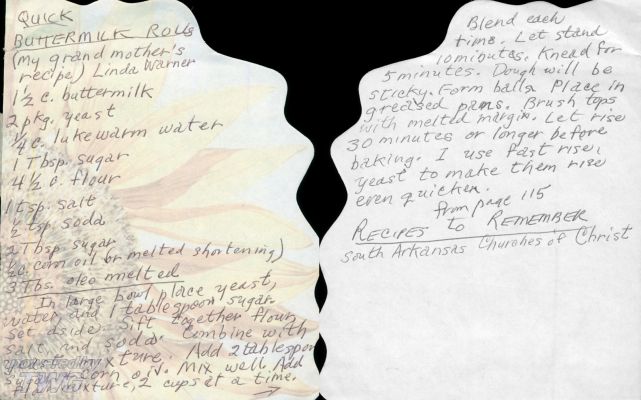 QUICK
BUTTERMILK ROLLS
(my grand mother's
recipe) Linda Warner
1 1/2 c. buttermilk
2 pkg. yeast
1/4 c. lukewarm water
1 Tbsp. sugar
4 1/2 c. flour
1 tsp. salt
1/2 tsp. soda
2 Tbsp sugar
corn oil or melted shortening)
3 Tbs. oleo melted
In large bowl, place yeast,
water and 1 tablespoon sugar
set aside. Sift together flour,
salt and soda. Combine with
yeast mixture. Add 2 tablespoon
sugar + corn oil. Mix well. Add
mixture, 2 cups at a time.
Blend each
time. Let stand
10 minutes. Knead for
5 minutes. Dough will be
sticky. Form balls. Place in
greased pans. Brush tops
with melted margin. Let rise
30 minutes or longer before
baking. I use fast rise,
yeast to make them rise
even quicker.
from page 115
RECIPES to REMEMBER
South Arkansas Churches of Christ